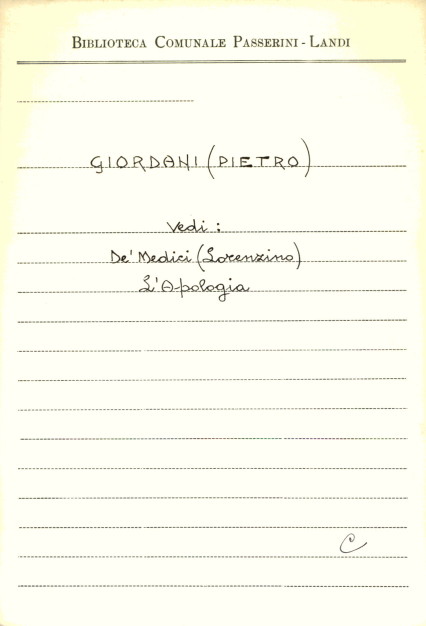 BIBLIOTECA COMUNALE PASSERINI - LANDI
GIORDANI (PIETRO)
Vedi :
De' Medici (Lorenzino)
L'Apologia
C